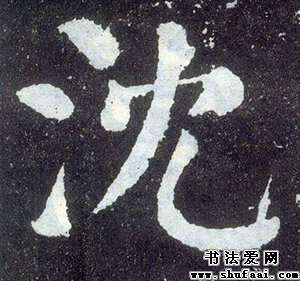 沈
书法爱网
www.shufaai.com